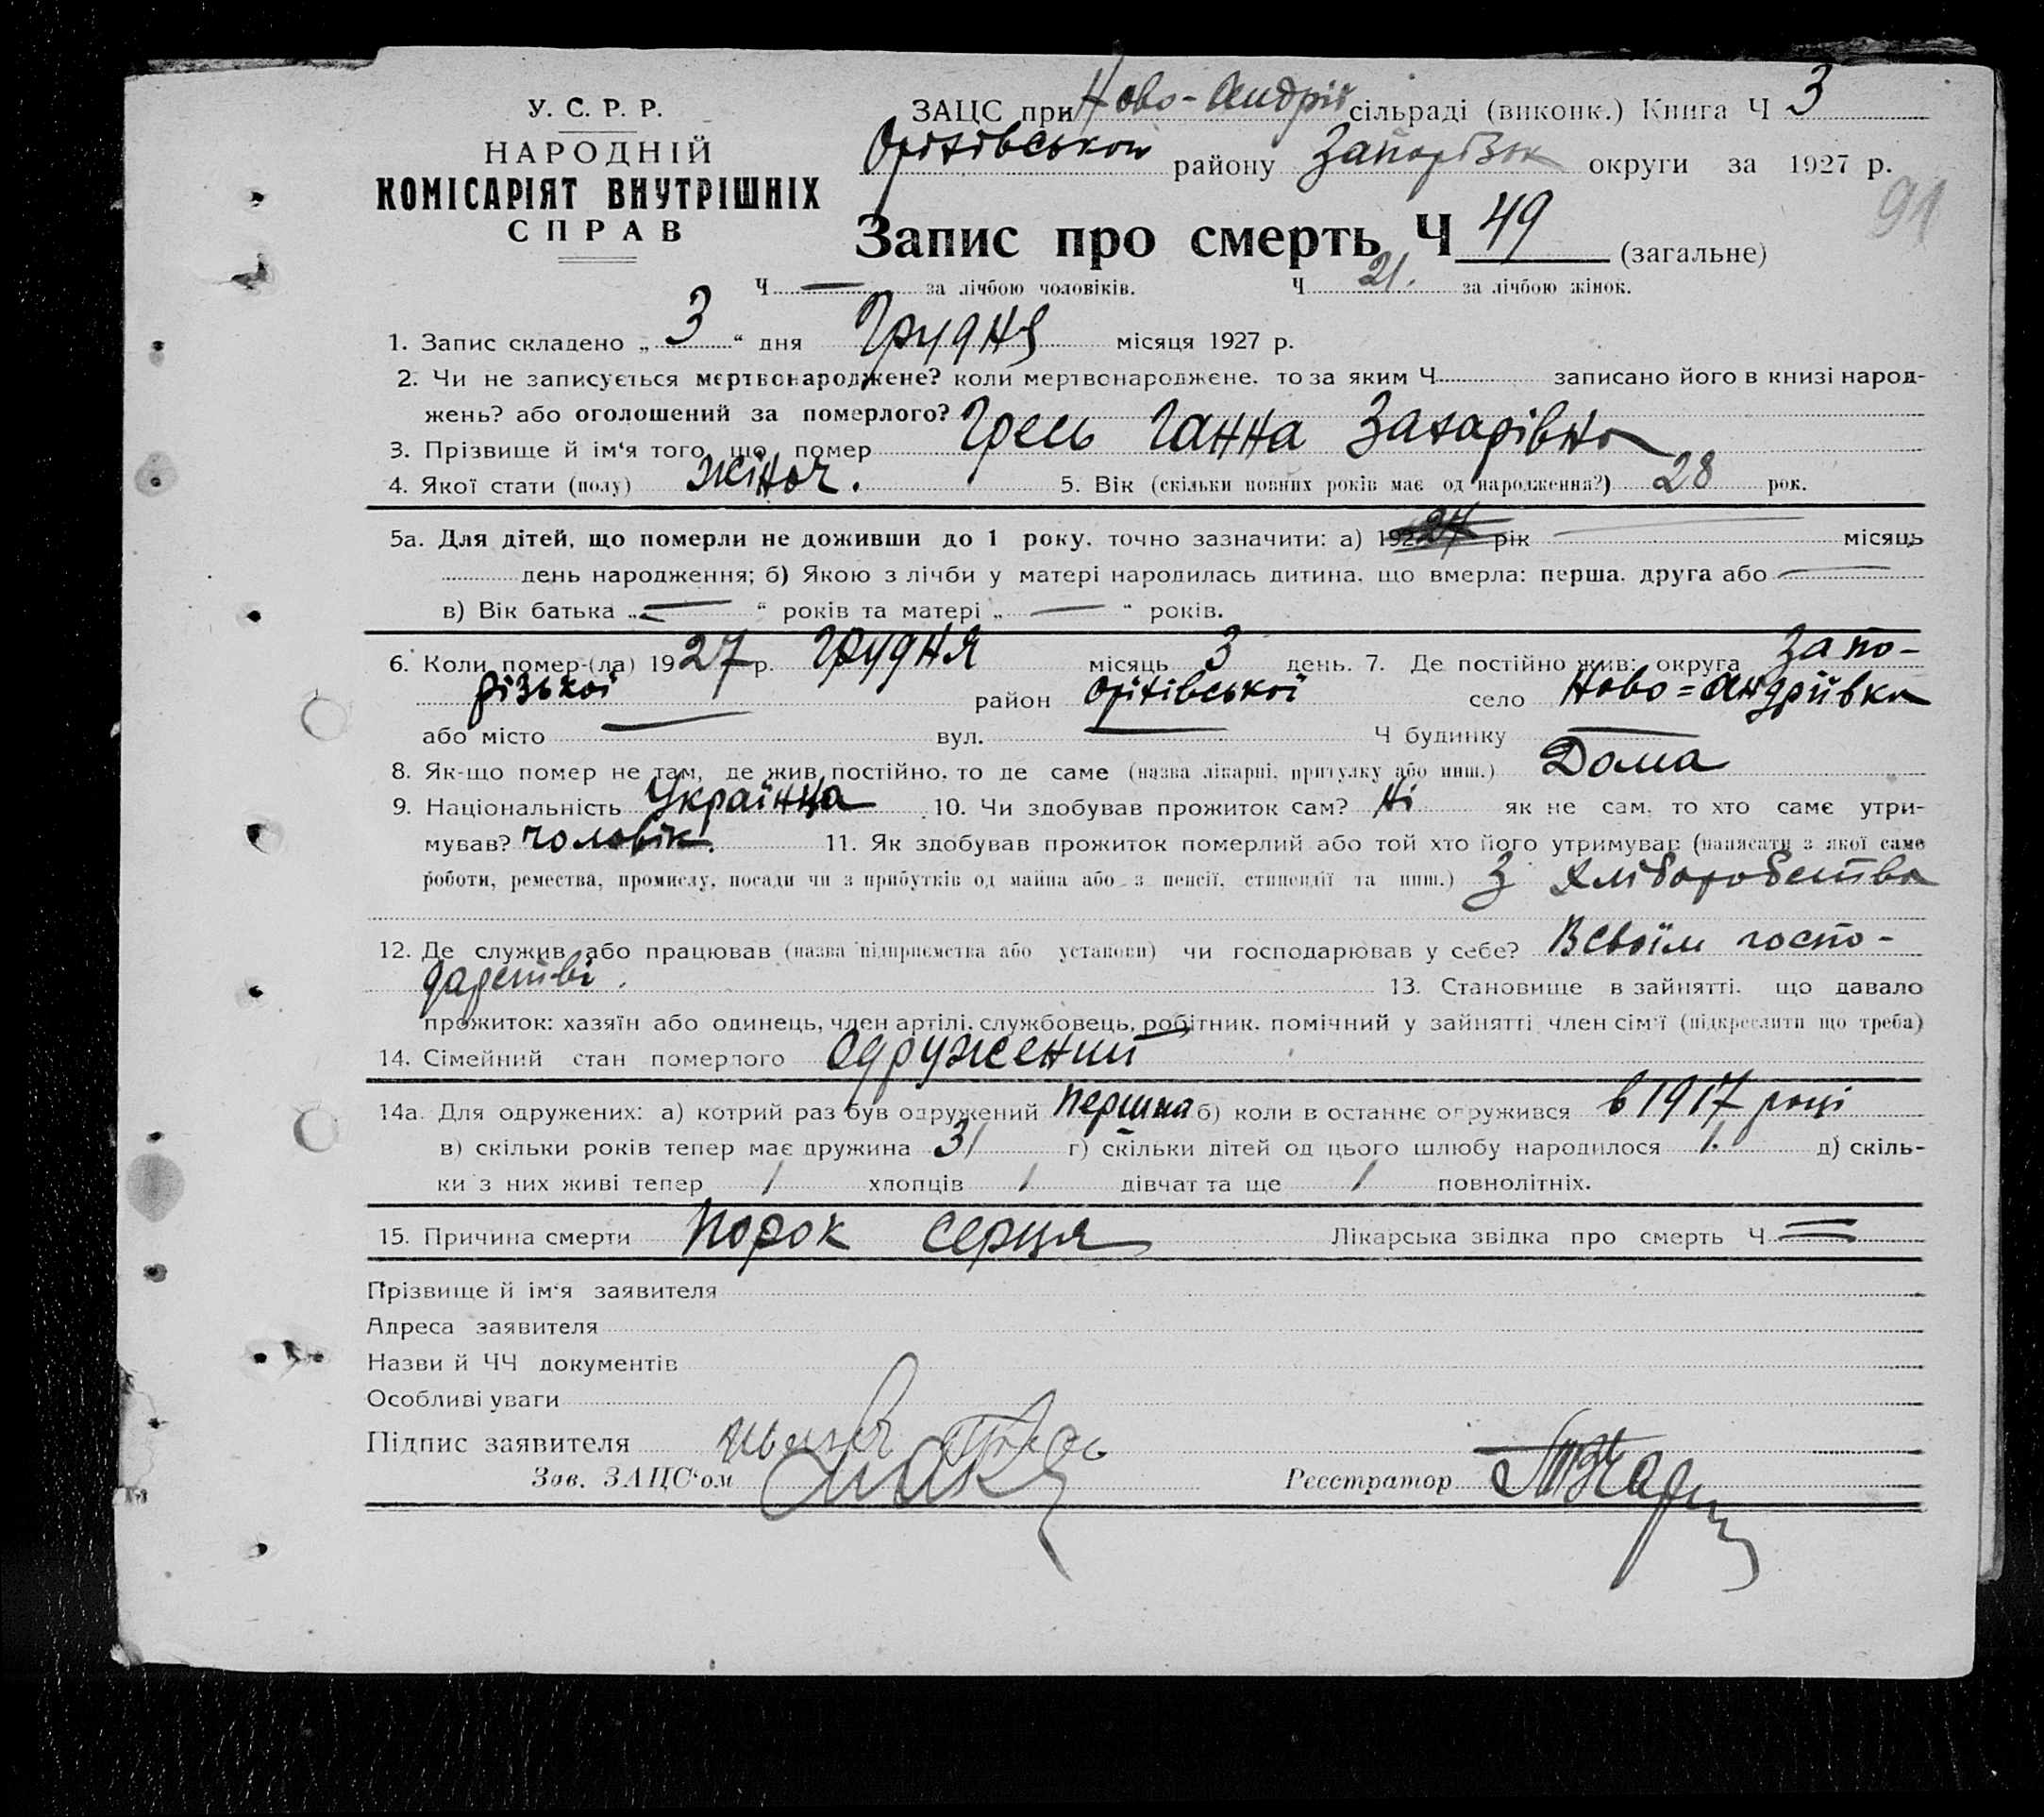 У. С. Р. Р.
НАРОДНІЙ
КОМІСАРІЯТ ВНУТРІШНІХ
СПРАВ
ЗАЦС при Ново-Андрів сільраді (виконк.) Книга Ч 3
Оріхівськой району Запорізьк округи за 1927 р.
91
Запис про смерть Ч 49 (загальне)
Ч — за лічбою чоловіків. Ч 21. за лічбою жінок.
1. Запис складено „ 3 “ дня Грудня місяця 1927 р.
2. Чи не записується мертвонароджене? коли мертвонароджене, то за яким Ч записано його в книзі народ-
жень? або оголошений за померлого?
3. Прізвище й ім‘я того, що помер Гресь Ганна Захарівна
4. Якої стати (полу) жіноч. 5. Вік (скільки повних років має од народження?) 28 рок.
5а. Для дітей, що померли не доживши до 1 року, точно зазначити: а) 19227 рік — місяць
день народження; б) Якою з лічби у матері народилась дитина, що вмерла: перша, друга або —
в) Вік батька „ — “ років та матері „ — “ років.
6. Коли помер-(ла) 1927 р. грудня місяць 3 день. 7. Де постійно жив: округа Запо-
різької район Оріхівської село Ново=Андріївка
або місто — вул. — Ч будинку —
8. Як-що помер не там, де жив постійно, то де саме (назва лікарні, притулку або инш.) Дома
9. Національність Українка 10. Чи здобував прожиток сам? Ні як не сам, то хто саме утри-
мував? чоловік. 11. Як здобував прожиток померлий або той хто його утримував (написати з якої саме
роботи, ремества, промислу, посади чи з прибутків од майна або з пенсії, стипендії та инш.) З хліборобства
12. Де служив або працював (назва підприємства або установи) чи господарював у себе? В своїм госпо-
дарстві. 13. Становище в зайнятті, що давало
прожиток: хазяїн або одинець, член артілі, службовець, робітник, помічний у зайнятті член сім‘ї (підкреслити що треба)
14. Сімейний стан померлого одружений
14а. Для одружених: а) котрий раз був одружений перший б) коли в останнє одружився в 1917 році
в) скільки років тепер має дружина 31 г) скільки дітей од цього шлюбу народилося 1. д) скіль-
ки з них живі тепер / хлопців / дівчат та ще / повнолітніх.
15. Причина смерти порок серця Лікарська звідка про смерть Ч =
Прізвище й ім‘я заявителя
Адреса заявителя
Назви й ЧЧ документів
Особливі уваги
Підпис заявителя Гресь
Зав. ЗАЦС‘ом
Реєстратор